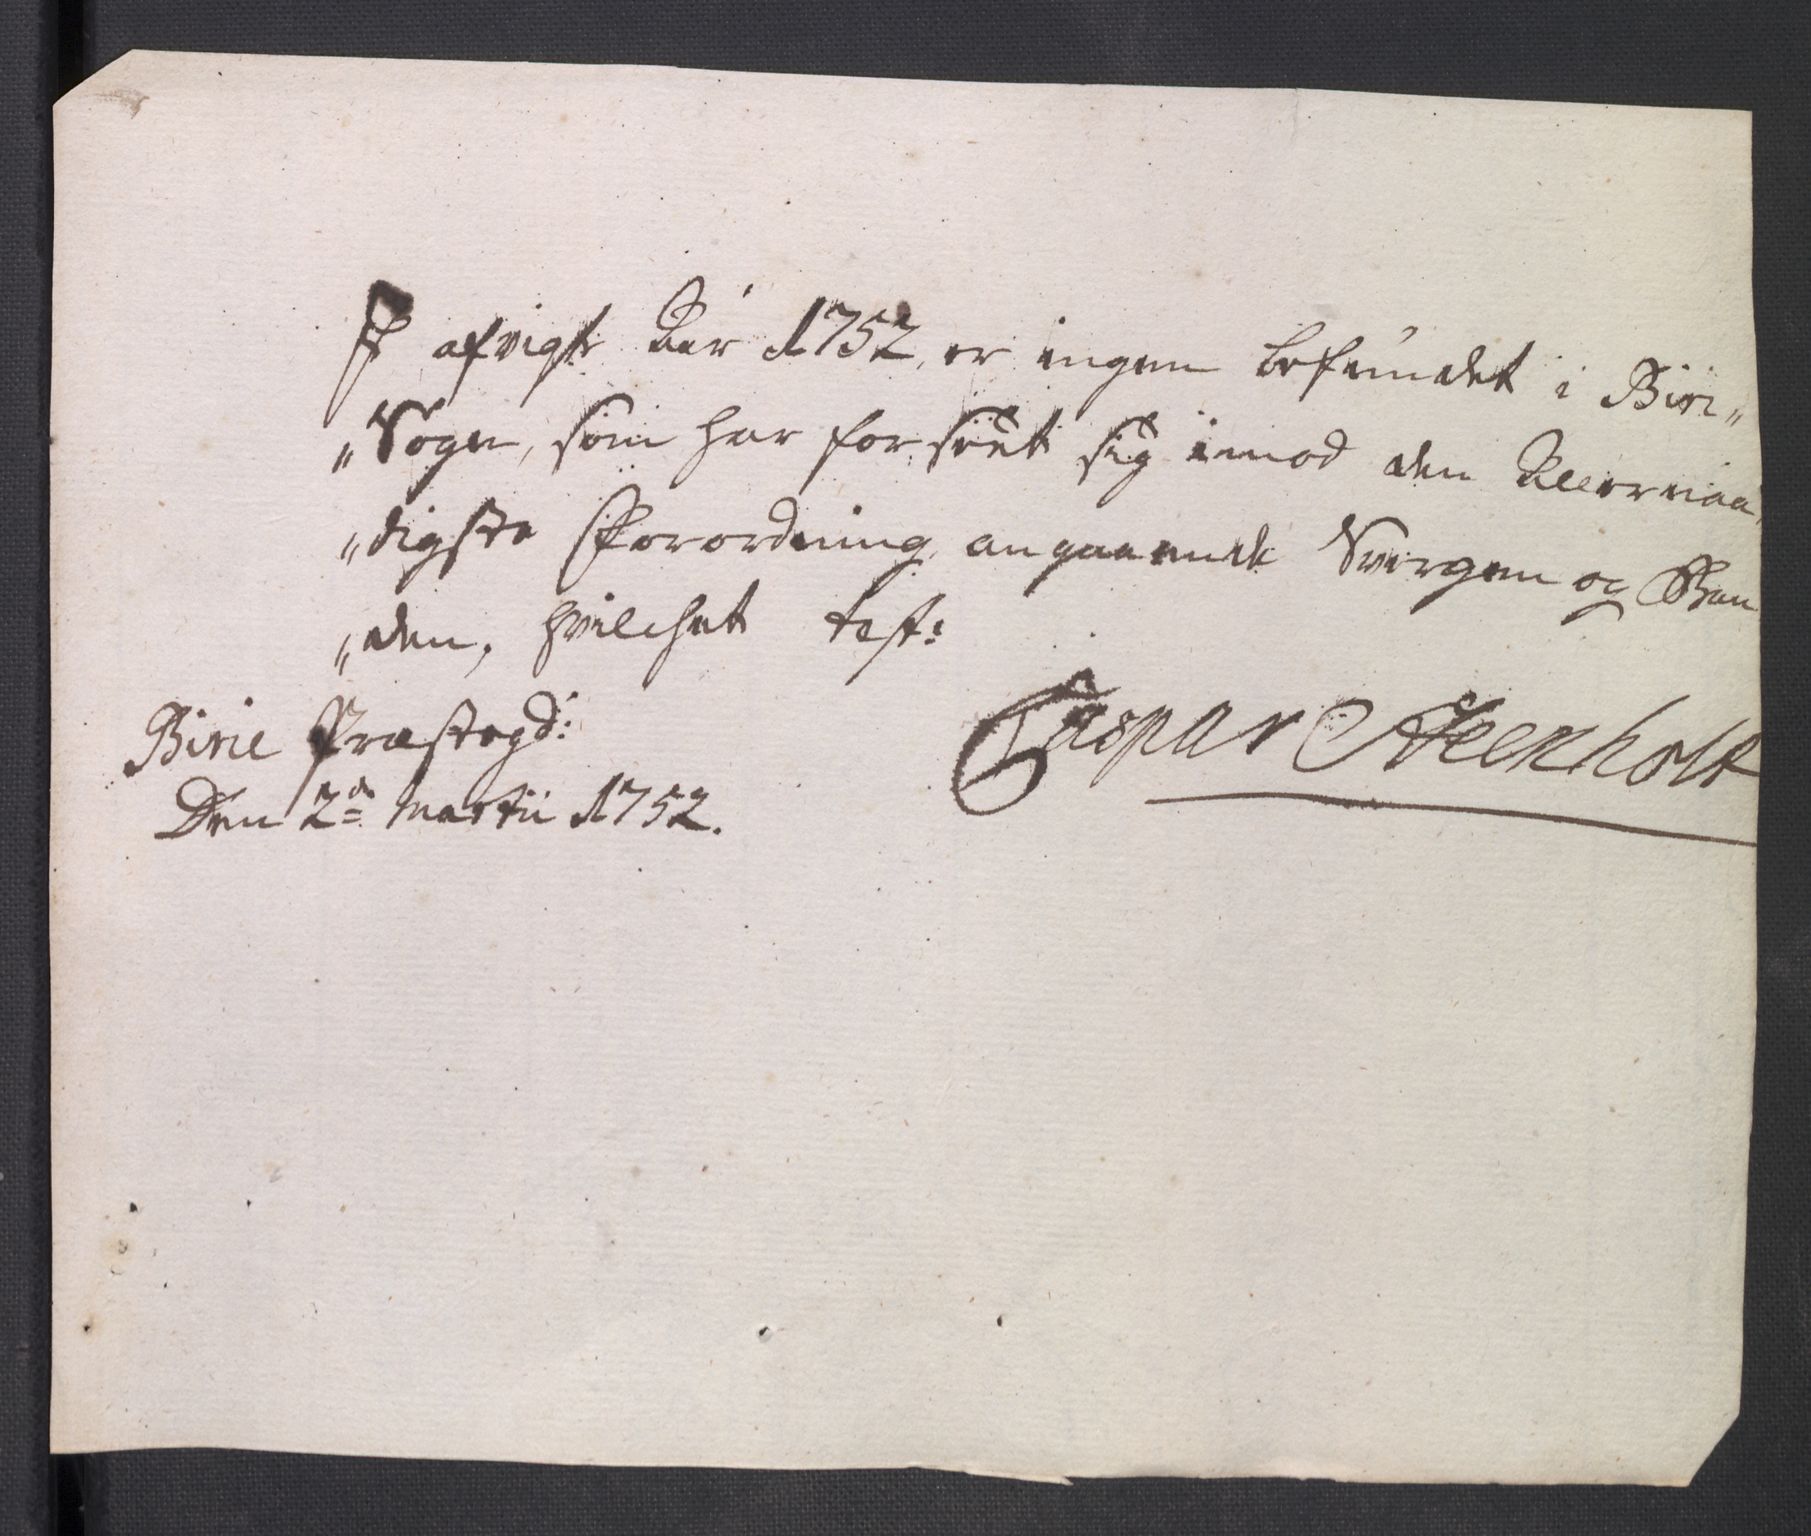 I afvigte Aar 1752, er ingen befundet i Biri„
„Sogn, som har forseet sig imod den Allernaa„
„digste Forordning angaaende Svergen og Ban
„den, hvilchet test:
Birie Præstegd:
Den 2den Martii 1752.
Caspar Steenholt